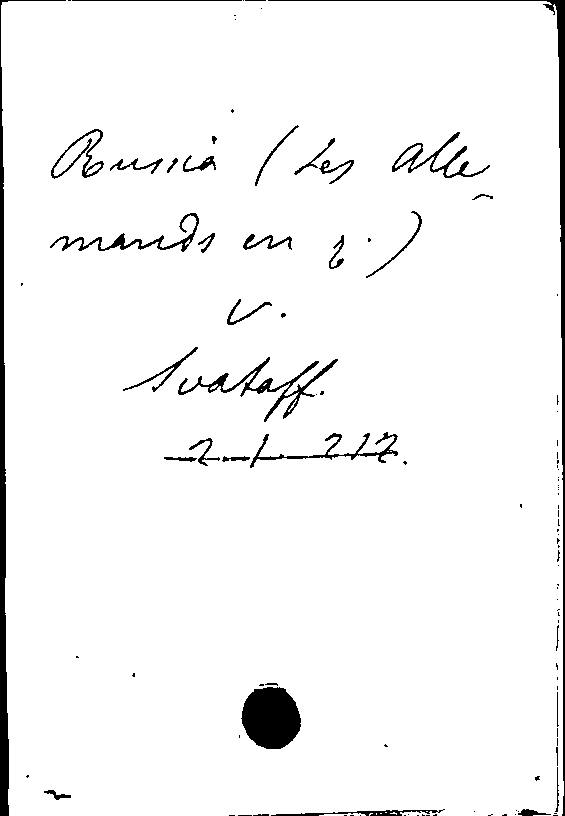 Russia (Les Alle-
mands en R.)
v.
Svatoff.
2. 1. 217.